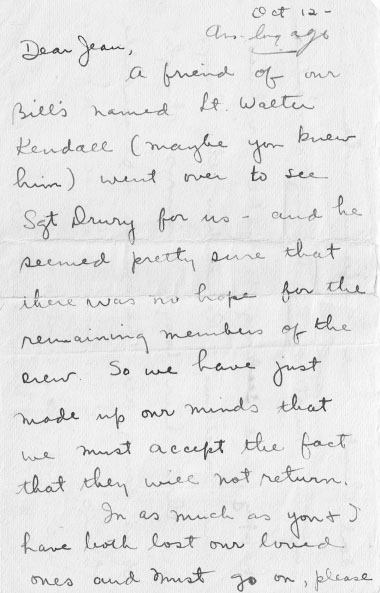 Oct 12-
Ans. long ago
Dear Jean,
A friend of our
Bill's named Lt. Walter
Kendall (maybe you knew
him) went over to see
Sgt Drury for us - and he
seemed pretty sure that
there was no hope for the
remaining members of the
crew. So we have just
made up our minds that
we must accept the fact
that they will not return.
In as much as you & I
have both lost our loved
ones and must go on, please